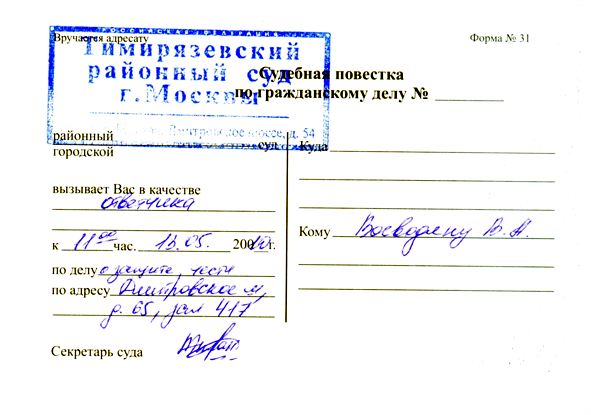 РОССИЙСКАЯ ФЕДЕРАЦИЯ
Вручается адресату
Форма № 31
Тимирязевский
районный суд
г.Москвы
Судебная повестка
по гражданскому делу №
Дмитровское шоссе, д. 54
районный
городской
суд
вызывает Вас в качестве
ответчика
к 11 00 час. 13.05. 2010г.
по делу о защите чести
по адресу Дмитровское ш,
д. 65, зал 417
Секретарь суда
Куда
Кому Воеводину В.А.